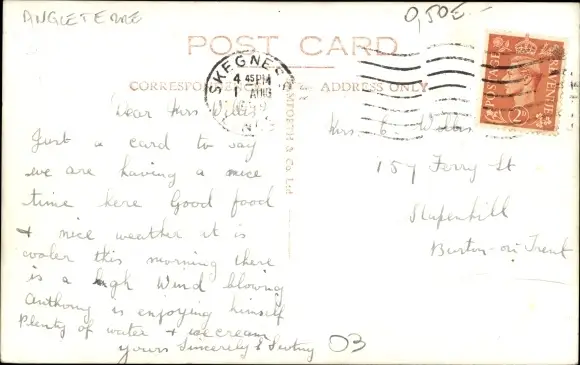 ANGLETERRE
0,50£.-
POST CARD
SKEGNESS
4 45PM
1 AUG
CORRESPO
ADDRESS ONLY
& Co. Ltd
POSTAGE
2D
Dear Mrs Willis
Just a card to say
we are having a nice
time here Good food
+ nice weather it is
cooler this morning there
is a high Wind blowing
Anthony is enjoying himself
Plenty of water + icecream
yours Sincerely
Mrs. C. Willis
157 Ferry St
Stapenhill
Burton-on-Trent
03